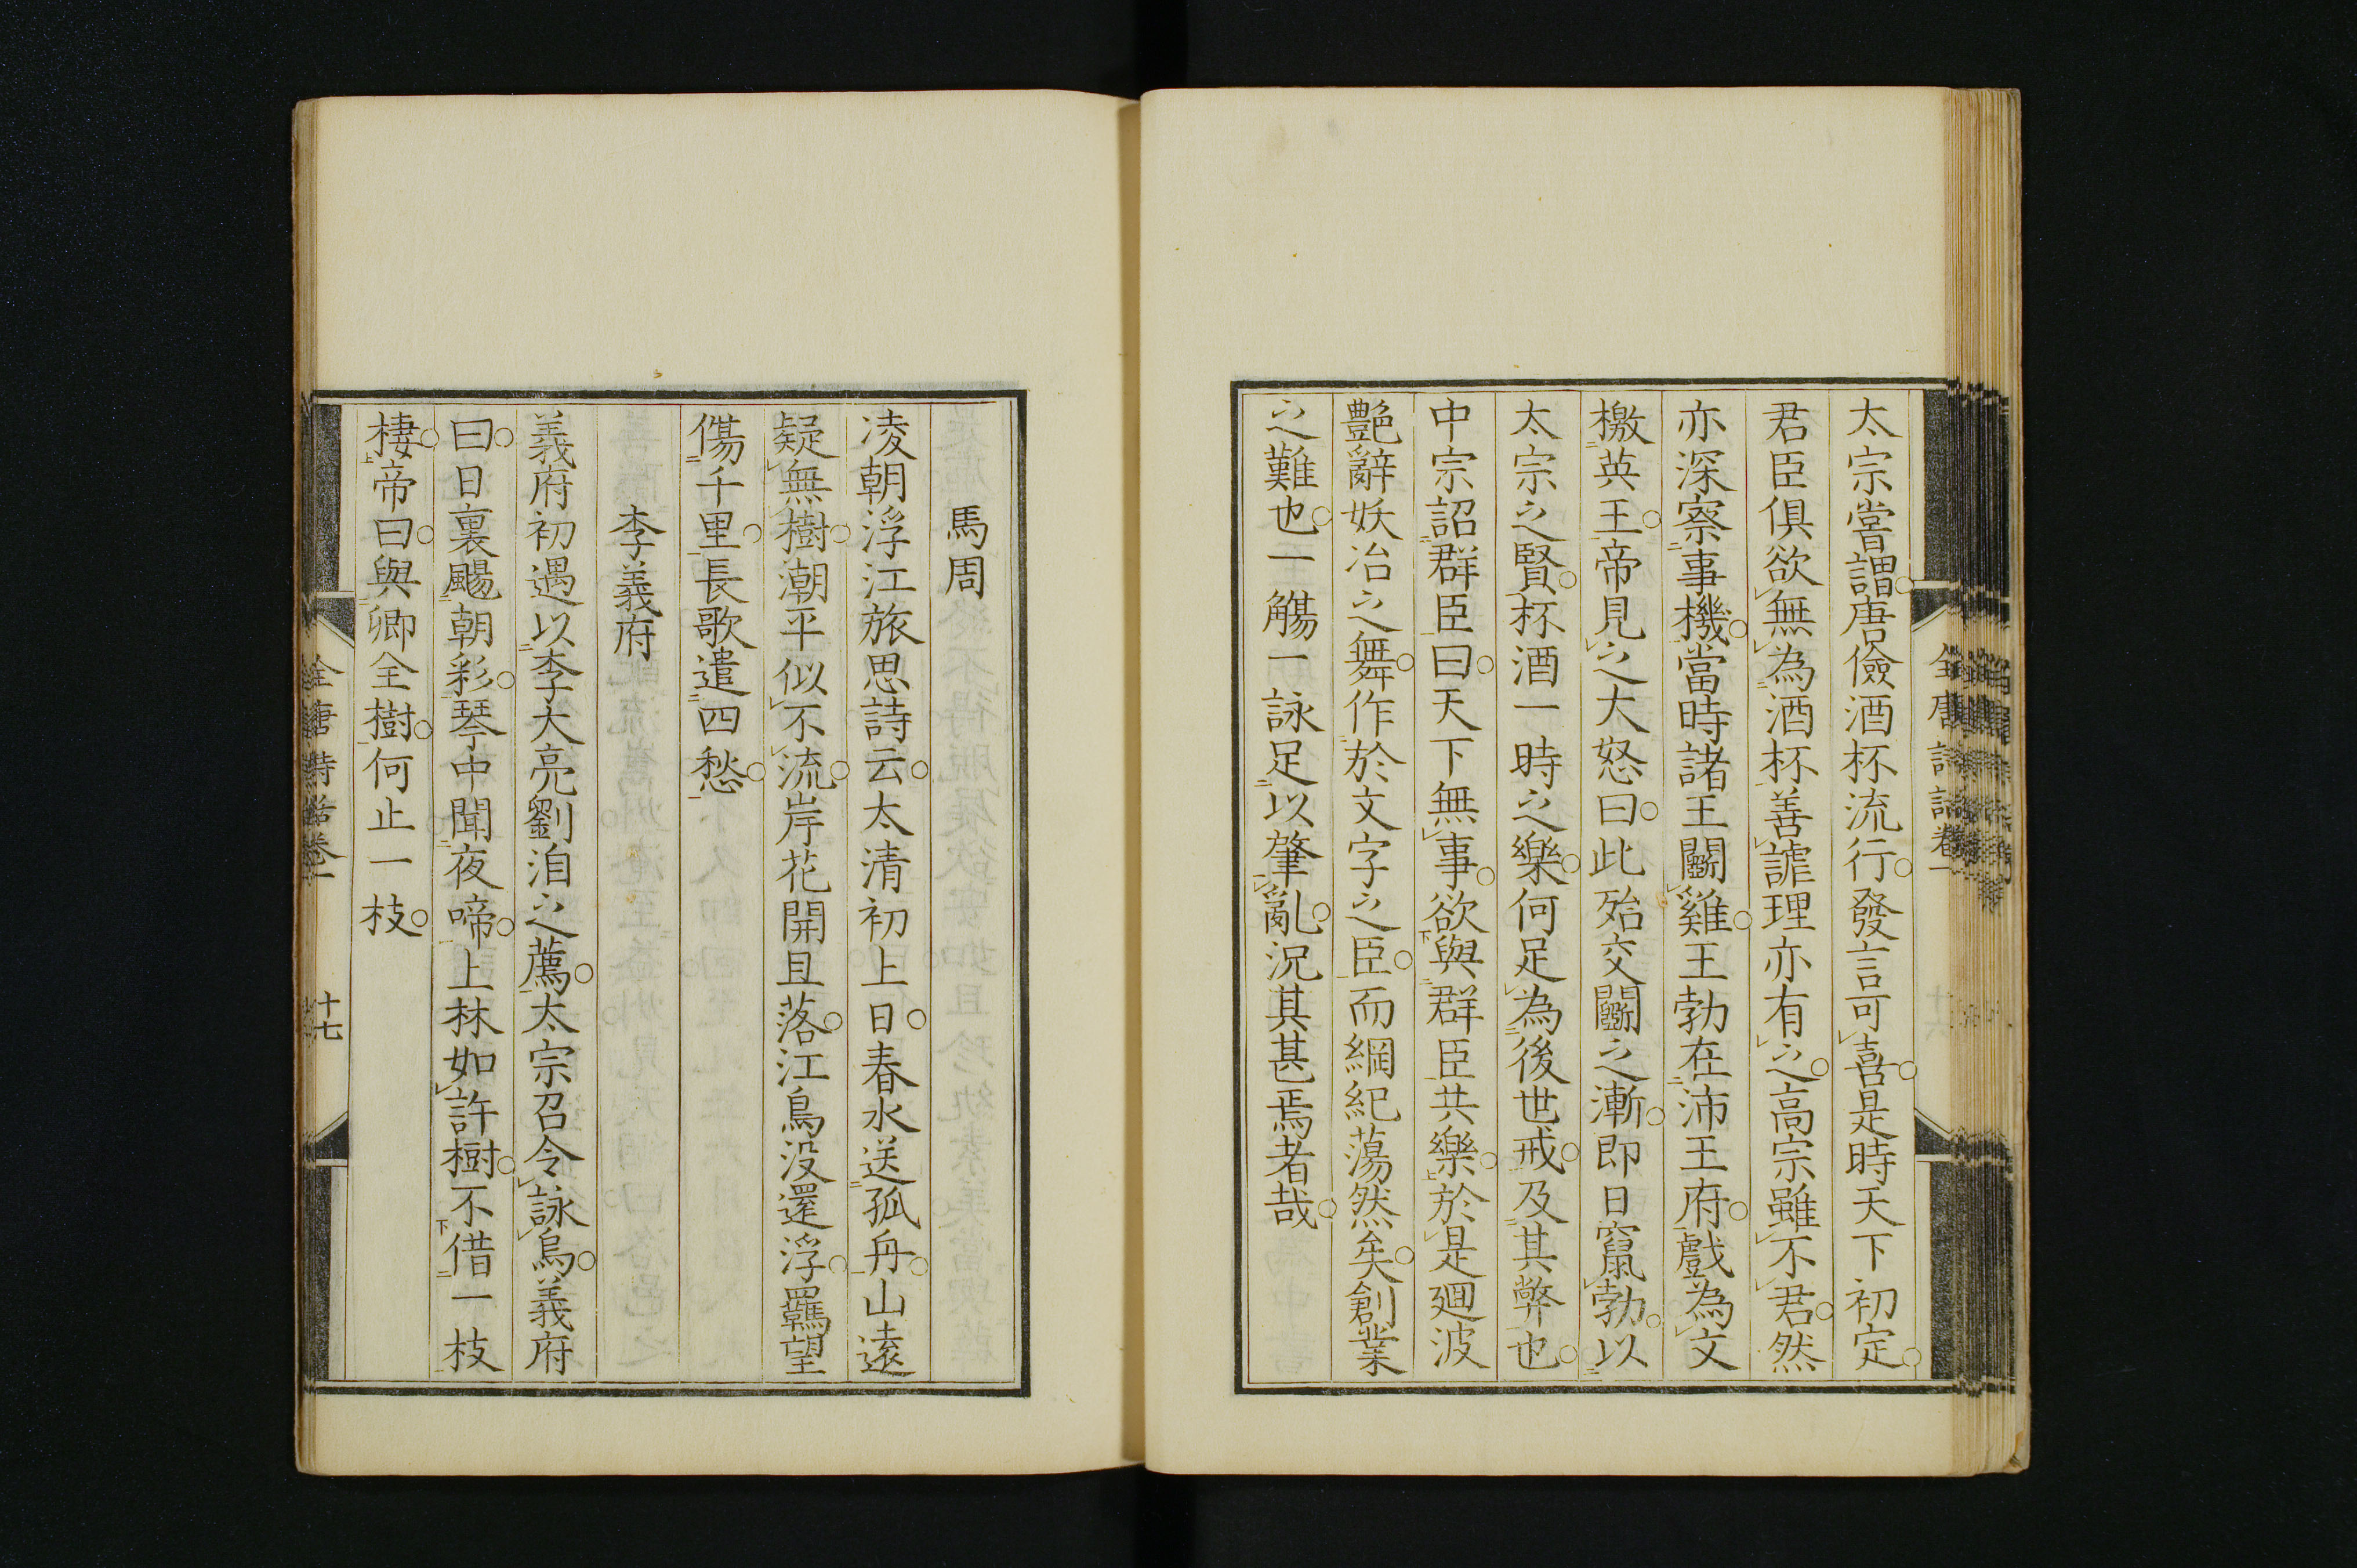 太宗嘗謂唐儉酒杯流行發言可喜是時天下初定
君臣俱欲無為酒杯善謔理亦有之高宗雖不君然
亦深察事機當時諸王鬬雞王勃在沛王府戲為文
檄英王帝見之大怒曰此殆交鬬之漸即日竄勃以
太宗之賢杯酒一時之樂何足為後世戒及其弊也
中宗詔群臣曰天下無事欲與群臣共樂於是廻波
艷辭妖冶之舞作於文字之臣而綱紀蕩然矣創業
之難也一觴一詠足以肇亂況其甚焉者哉
全唐詩話卷一
馬周
凌朝浮江旅思詩云太清初上日春水送孤舟山遠
疑無樹潮平似不流岸花開且落江鳥没還浮羈望
傷千里長歌遣四愁
李義府
義府初遇以李大亮劉洎之薦太宗召令詠烏義府
曰日裏颺朝彩琴中聞夜啼上林如許樹不借一枝
棲帝曰與卿全樹何止一枝
全唐詩話卷一
十七